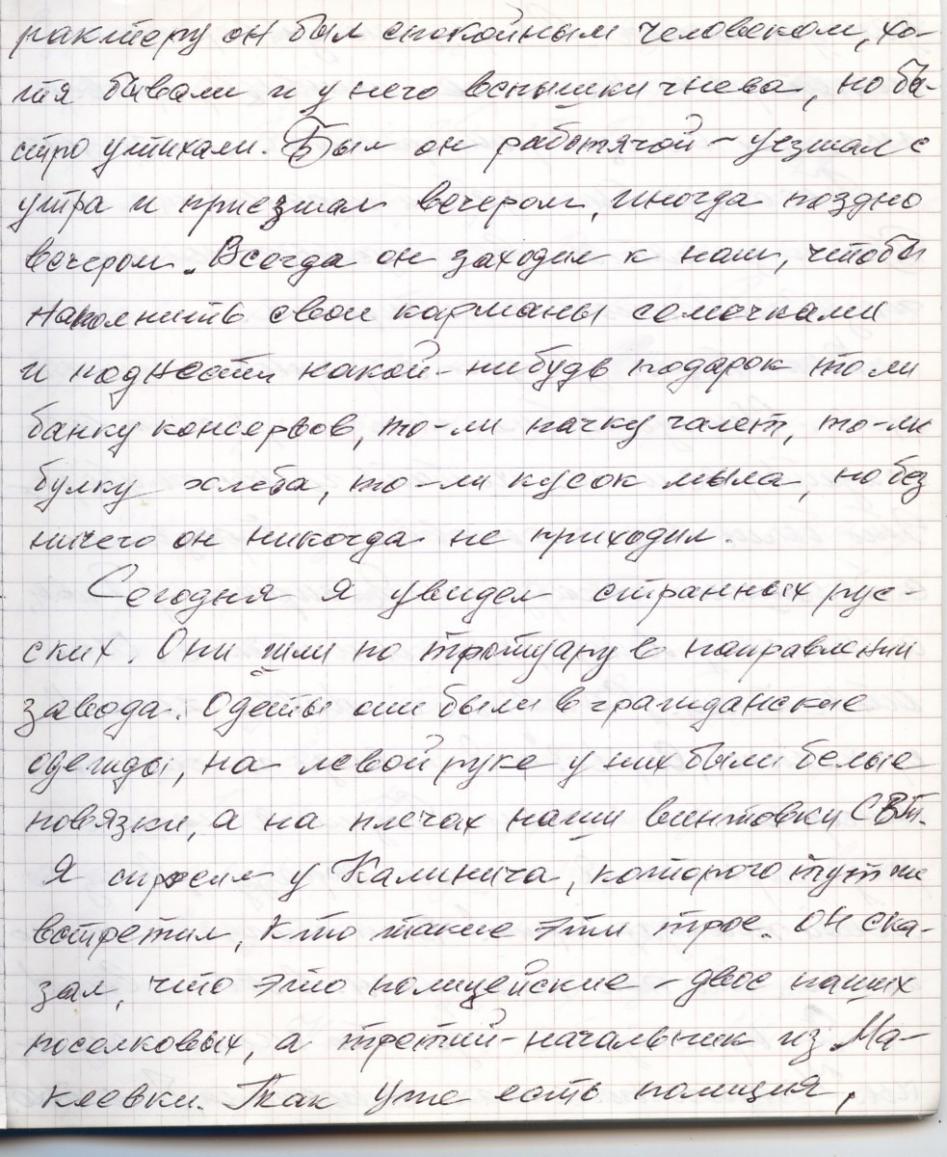 рактеру он был спокойным человеком, хо-
тя бывали и у него вспышки гнева, но бы-
стро утихали. Был он работячой - уезжал с
утра и приезжал вечером, иногда поздно
вечером. Всегда он заходил к нам, чтобы
наполнить свои карманы семечками
и поднести какой-нибудь подарок то ли
банку консервов, то-ли пачку галет, то-ли
булку хлеба, то-ли кусок мыла, но без
ничего он никогда не приходил.
Сегодня я увидел странных рус-
ских. Они шли по тротуару в направлении
завода. Одеты они были в гражданские
одежды, на левой руке у них были белые
повязки, а на плечах наши винтовки СВТ.
Я спросил у Калинича, которого тут же
встретил, кто такие эти трое. Он ска-
зал, что это полицейские - двое наших
поселковых, а третий - начальник из Ма-
кеевки. Так уже есть полиция,